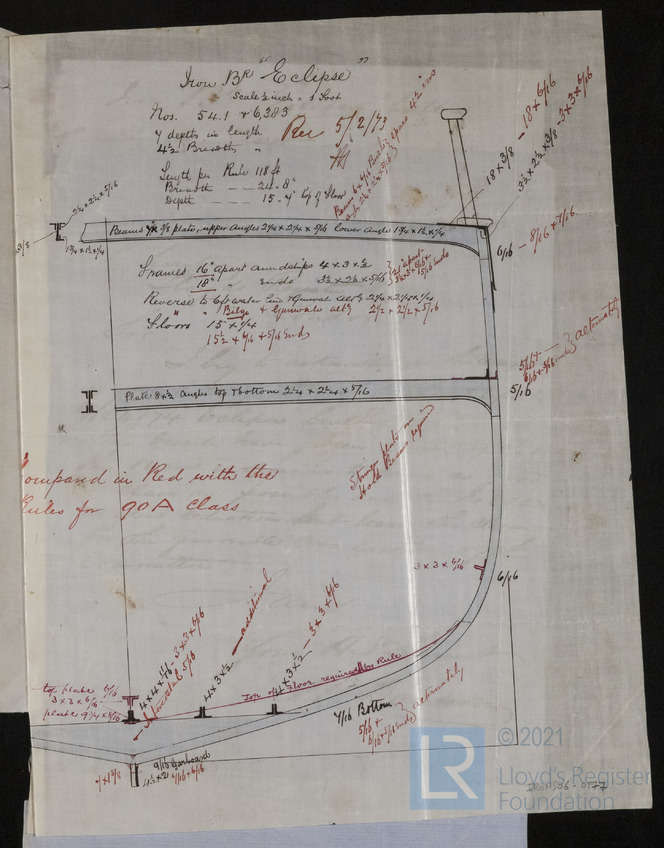 Iron Bk "Eclipse"
Scale ¼ inch = 1 Foot
Nos. 54.1 & 6,383
7 depths in length
4½ Breadths "
Rec 5/2/73
Length per Rule 118 ft
Breadth — 24 - 8"
Depth — 15 - 4" top of Floor
18 x 3/8 - 18 x 6/16
3½ x 2½ x 3/8 - 3 x 3 x 6/16
2¼ x 2¼ x 5/16
3/8
1¾ x 1½ x ¼
Beams 7 x 3/8 plate, upper Angles 2¼ x 2¼ x 5/16 lower Angle 1¾ x 1½ x ¼
6/16 - 8/16 & 7/16
Frames 16" apart amidships 4 x 3 x ½
18" " ends 3½ x 2½ x 5/16
21" apart
Reverse to 6ft water line & Gunwale altly 2¼ x 2¼ x ¼
" " Bilge & Gunwale altly 2½ x 2½ x 5/16
Floors 15 x ¼
15½ x 6/16 & 5/16 Ends
5/16 &
6/16 & 5/16 ends } alternately
5/16
Plate 8 x ½ Angles top & bottom 2¼ x 2¼ x 5/16
Stringer plate on
Hold Beams required
Compared in Red with the
Rules for 90A Class
3 x 3 x 6/16
6/16
additional
4 x 4 x 6/16 - 3 x 3 x 6/16
Intercostal 5/16
4 x 3 x ½
4 x 3 x ½ - 3 x 3 x 6/16
Top of Floor required by Rule
top plate 6/16
3 x 3 x 6/16
plate 9¼ x 5/16
7/16 Bottom
5/16 &
6/16 & 5/16 ends } alternately
9/16 Garboard
7 x 1 5/8
4½ x 2½
7/16 & 6/16
© 2021
LR
Lloyd's Register
Foundation